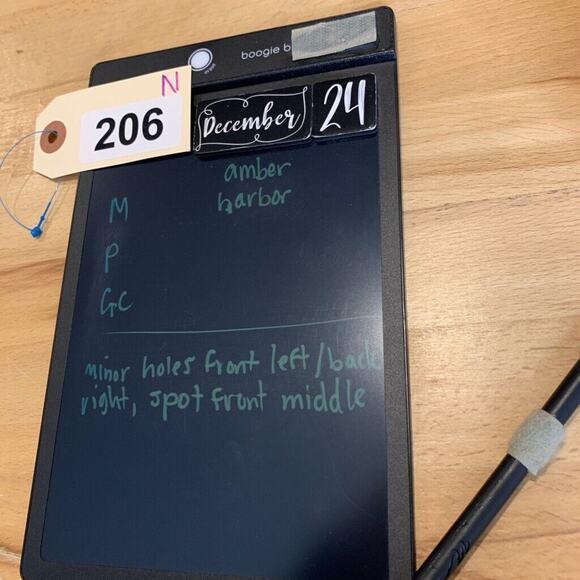 boogie b
N
206
December 24
amber
M harbor
P
GC
minor holes front left/back
right, spot front middle